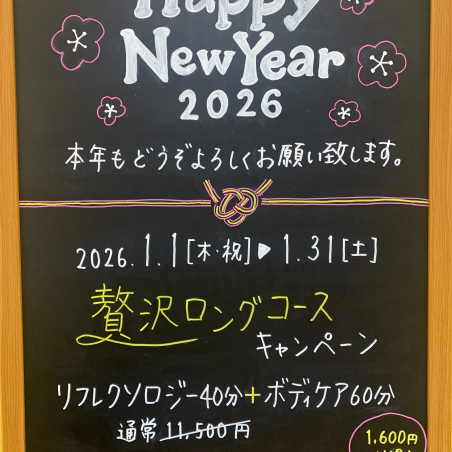 Happy
New Year
2026
本年もどうぞよろしくお願い致します。
2026.1.1[木・祝]▶1.31[土]
贅沢ロングコース
キャンペーン
リフレクソロジー40分+ボディケア60分
通常 11,500円
1,600円